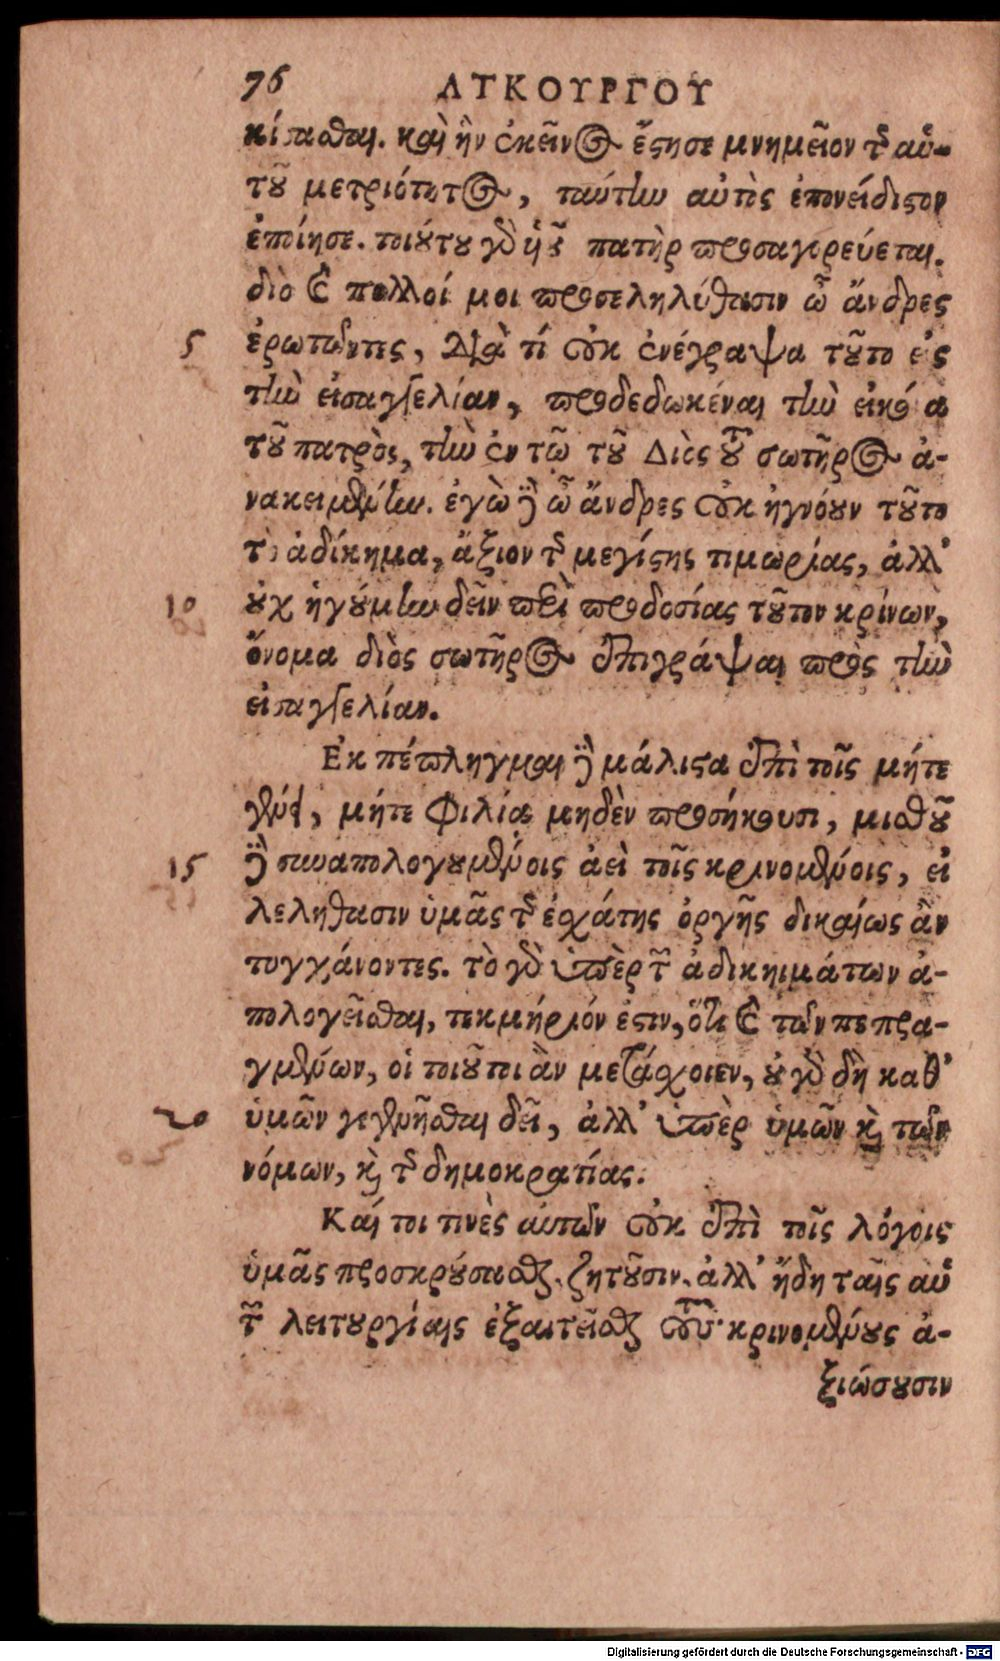 76 ΛΥΚΟΥΡΓΟΥ
κίπασθαι. καὶ ἣν ἐκεῖνος ἔστησε μνημεῖον τῆς αὑ-
τοῦ μετριότητος, ταύτην αὐτὸς ἐπονείδιστον
ἐποίησε. τοιούτου γὰρ πατὴρ προσαγορεύεται.
διὸ καὶ πολλοί μοι προσεληλύθασιν ὦ ἄνδρες
5 ἐρωτῶντες, Διὰ τί οὐκ ἐνέγραψα τοῦτο εἰς
τὴν εἰσαγγελίαν, προδεδωκέναι τὴν εἰκόνα
τοῦ πατρὸς, τὴν ἐν τῷ τοῦ Διὸς τοῦ σωτῆρος ἀ-
νακειμένην. ἐγὼ δὲ ὦ ἄνδρες οὐκ ἠγνόουν τοῦτο
τὸ ἀδίκημα, ἄξιον τῆς μεγίστης τιμωρίας, ἀλλ'
10 οὐχ ἡγούμην δεῖν περὶ προδοσίας τοῦτον κρίνων,
ὄνομα διὸς σωτῆρος ἐπιγράψαι πρὸς τὴν
εἰσαγγελίαν.
Εκπέπληγμαι δὲ μάλιστα ἐπὶ τοῖς μήτε
γένει, μήτε φιλίᾳ μηδὲν προσήκουσι, μισθοῦ
15 δὲ συναπολογουμένοις ἀεὶ τοῖς κρινομένοις, εἰ
λελήθασιν ὑμᾶς τῆς ἐσχάτης ὀργῆς δικαίως ἂν
τυγχάνοντες. τὸ γὰρ ὑπὲρ τῶν ἀδικημάτων ἀ-
πολογεῖσθαι, τεκμήριόν ἐστιν, ὅτι καὶ τῶν πεπρα-
γμένων, οἱ τοιοῦτοι ἂν μετάσχοιεν, οὐ γὰρ δὴ καθ'
20 ὑμῶν γεγενῆσθαι δεῖ, ἀλλ' ὑπὲρ ὑμῶν καὶ τῶν
νόμων, καὶ τῆς δημοκρατίας.
Καί τοι τινὲς αὐτῶν οὐκ ἐπὶ τοῖς λόγοις
ὑμᾶς προσκρούσασθαι ζητοῦσιν. ἀλλ' ἤδη ταῖς αὑ
τῶν λειτουργίαις ἐξαιτεῖσθαι τοὺς κρινομένους ἀ-
ξιώσουσιν
Digitalisierung gefördert durch die Deutsche Forschungsgemeinschaft - DFG